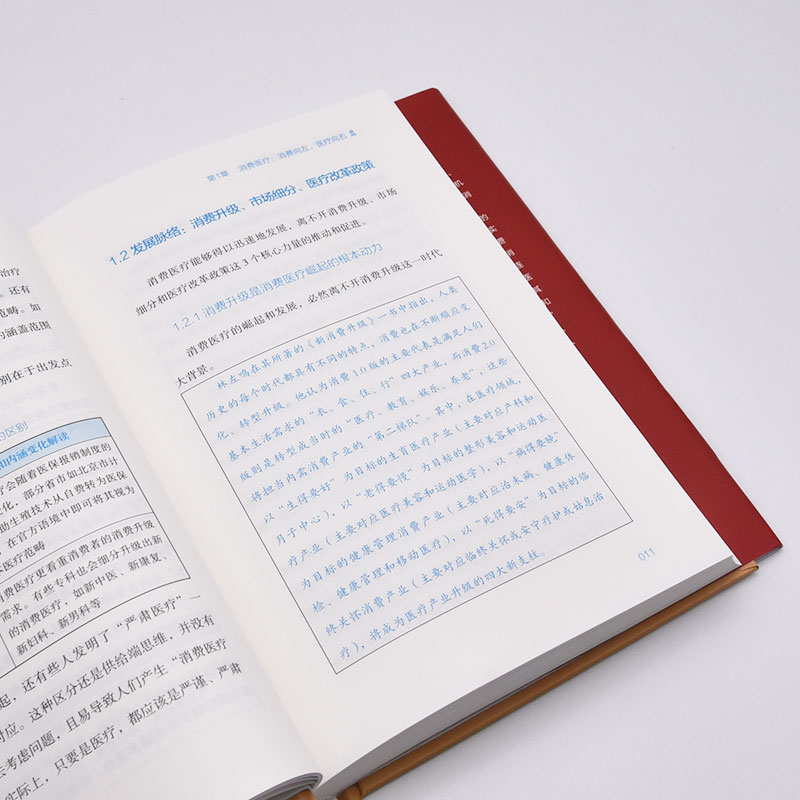 治疗
。还有
畴。如
内涵盖范围
别在于出发点
的区别
和内涵变化解读
疗会随着医保报销制度的
变化，部分省市如北京市计
助生殖技术从自费转为医保
，在官方语境中即可将其视为
疗范畴
消费医疗更看重消费者的消费升级
需求。有些专科也会细分升级出新
的消费医疗，如新中医、新康复、
新妇科、新男科等
起，还有些人发明了“严肃医疗”一
对应。这种区分还是供给端思维，并没有
去考虑问题，且易导致人们产生“消费医疗
实际上，只要是医疗，都应该是严谨、严肃
第1章 消费医疗：消费向左，医疗向右
1.2 发展脉络：消费升级、市场细分、医疗改革政策
消费医疗能够得以迅速地发展，离不开消费升级、市场
细分和医疗改革政策这3个核心力量的推动和促进。
1.2.1 消费升级是消费医疗崛起的根本动力
消费医疗的崛起和发展，必然离不开消费升级这一时代
大背景。
林左鸣在其所著的《新消费升级》一书中指出，人类
历史的每个时代都具有不同的特点，消费也在不断顺应变
化、转型升级。他认为消费1.0版的主要代表是满足人们
基本生活需求的“衣、食、住、行”四大产业，而消费2.0
版则是转型成当时的“医疗、教育、娱乐、养老”，这些
将担当内需消费产业的“第二梯队”。其中，在医疗领域，
以“生得要好”为目标的生育医疗产业（主要对应产科和
月子中心），以“老得要慢”为目标的整形美容和运动医
疗产业（主要对应医疗美容和运动医学），以“病得要晚”
为目标的健康管理消费产业（主要对应治未病、健康体
检、健康管理和移动医疗），以“死得要安”为目标的临
终关怀消费产业（主要对应临终关怀或安宁疗护或姑息治
疗），将成为医疗产业升级的四大新支柱。
011